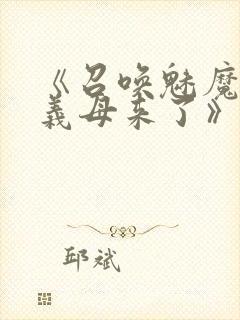 《召唤魅魔
義母来了》
邱斌